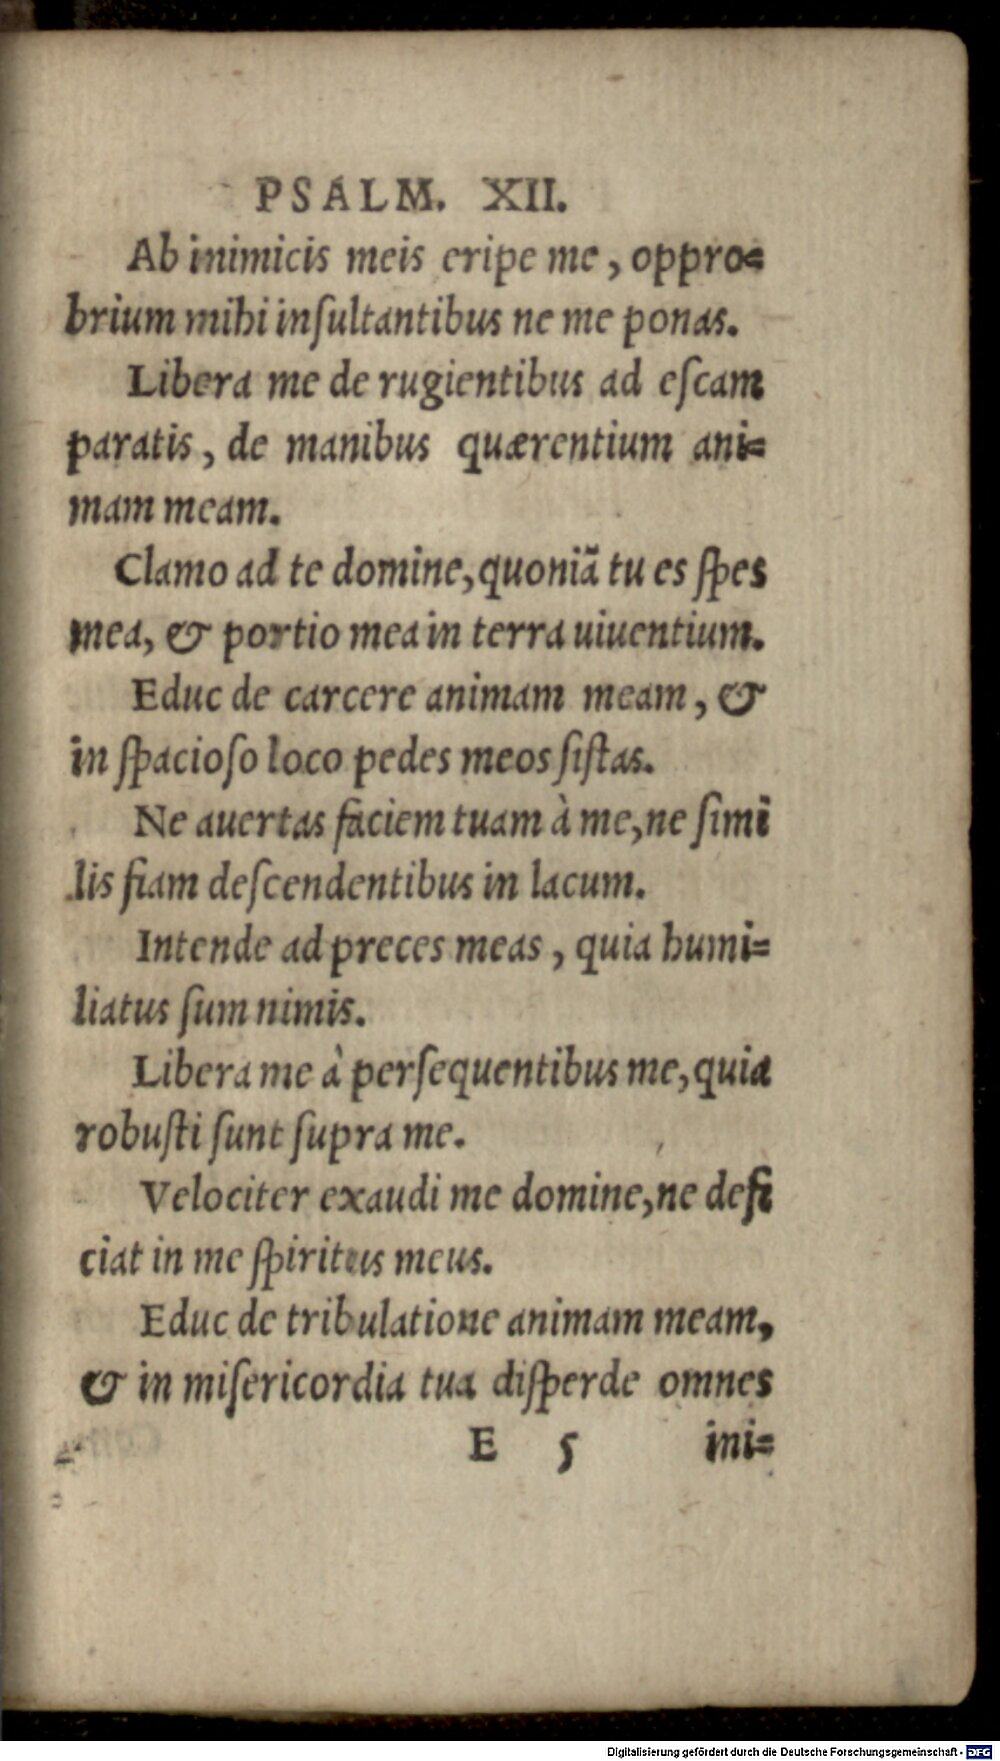 PSALM. XII.
Ab inimicis meis eripe me, oppro=
brium mihi inſultantibus ne me ponas.
Libera me de rugientibus ad eſcam
paratis, de manibus quærentium ani=
mam meam.
Clamo ad te domine, quoniã tu es ſpes
mea, & portio mea in terra uiuentium.
Educ de carcere animam meam, &
in ſpacioſo loco pedes meos ſiſtas.
Ne auertas faciem tuam à me, ne ſimi
lis fiam deſcendentibus in lacum.
Intende ad preces meas, quia humi=
liatus ſum nimis.
Libera me à perſequentibus me, quia
robuſti ſunt ſupra me.
Velociter exaudi me domine, ne defi
ciat in me ſpiritus meus.
Educ de tribulatione animam meam,
& in miſericordia tua diſperde omnes
E 5 ini=
Digitalisierung gefördert durch die Deutsche Forschungsgemeinschaft - DFG